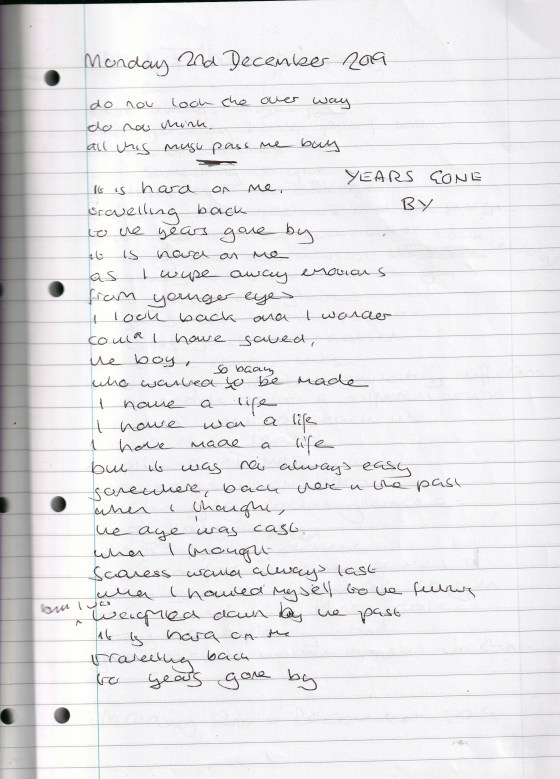 Monday 2nd December 2019
do not look the over way
do not think.
all this must pass me buy
YEARS GONE
BY
It is hard on me,
travelling back
to the years gone by
it is hard on me
as I wipe away emotions
from younger eyes
I look back and I wonder
could I have saved,
the boy,
so badly
who wanted to be made
I have a life
I have won a life
I have made a life
but it was not always easy
somewhere, back there in the past
when I thought,
the dye was cast.
when I thought
would always last
when I handed myself to the future
but I was
weighted down by the past
it is hard on me
travelling back
to years gone by